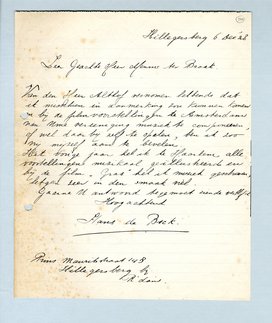 Hillegersberg 6 Dec '28
Zeer Geachte Heer Menno ter Braak.
Van den Heer Althoff vernomen hebbende dat
ik misschien in aanmerking zou kunnen komen
om bij de filmvoorstellingen te Amsterdam
van Uwe vereeniging muziek te componeeren
of wel daar bij wel te spelen, ben ik zoo
vrij mijzelf aan te bevelen.
Het vorige jaar heb ik te Haarlem, alle
voorstellingen muzikaal geïllustreerd en
bij de film het muziek geschreven,
zeer in den smaak viel.
Gaarne Uw antwoord tegemoet ziende verblijf ik
Hoogachtend
Hans de Bock.
Prins Mauritsstraat 14B
Hillegersberg bij
R'dam.